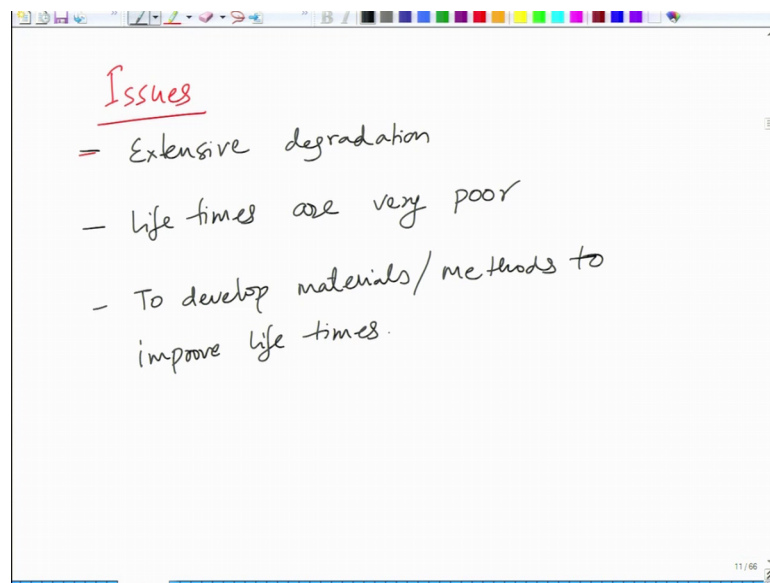 Issues
- Extensive degradation
- Life times are very poor
- To develop materials/methods to
improve life times.
11/66